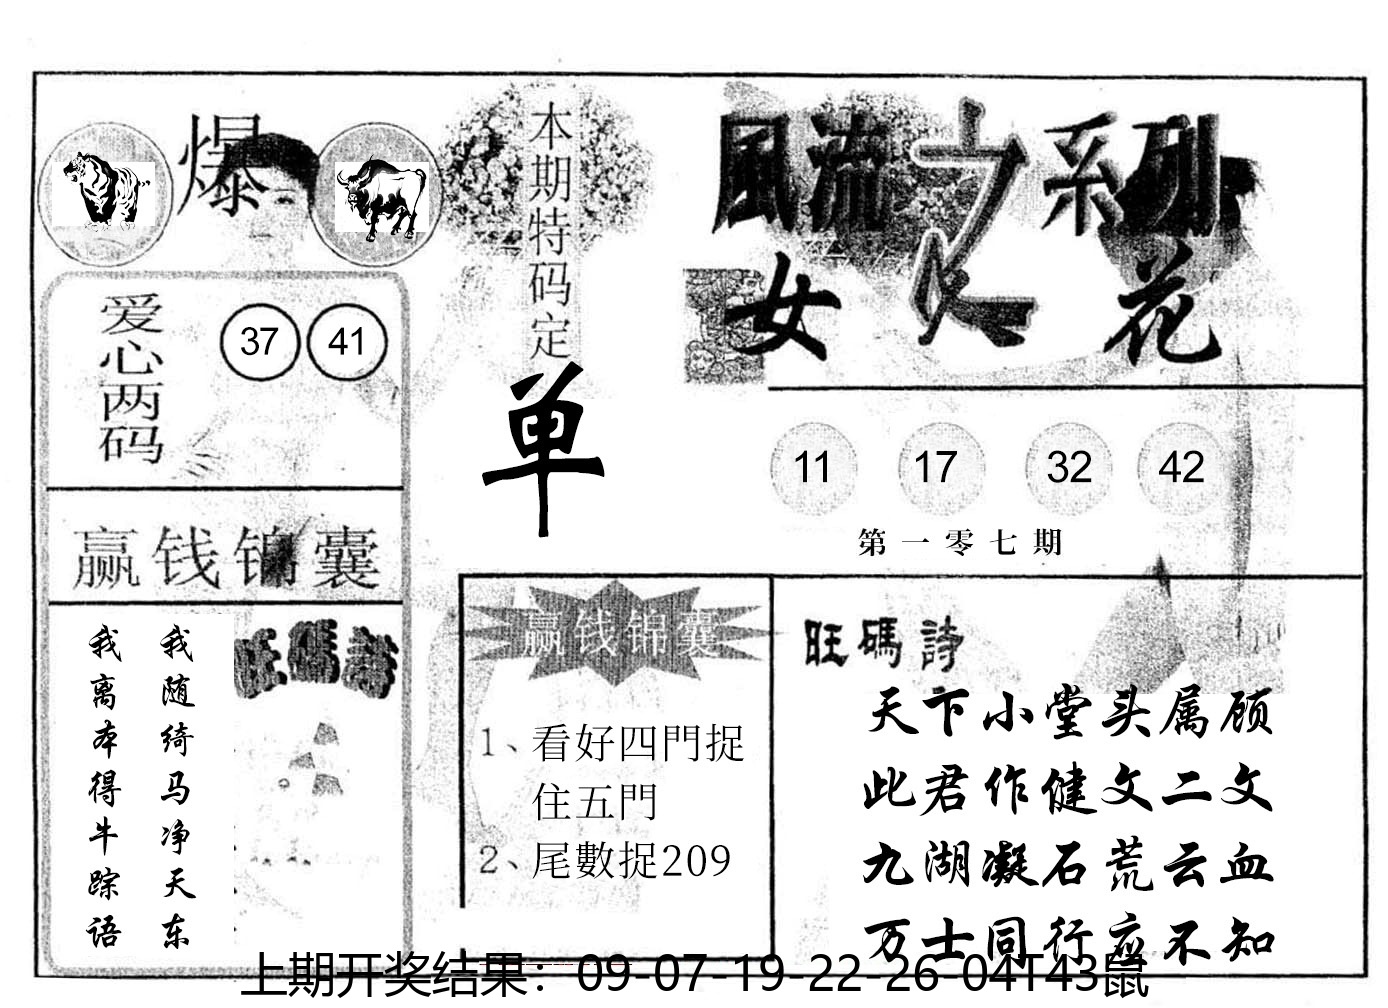 爆
本期特码定
单
風流之系列
女人花
爱心两码
37 41
11 17 32 42
第一零七期
赢钱锦囊
我随绮马净天东
我离本得牛踪语
旺碼詩
赢钱锦囊
1、看好四門捉
住五門
2、尾數捉209
旺碼詩
天下小堂头属顾
此君作健文二文
九湖凝石荒云血
万士同行应不知
上期开奖结果：09-07-19-22-26-04T43鼠